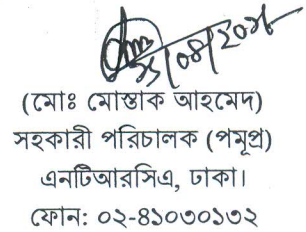 (মোঃ মোস্তাক আহমেদ)
সহকারী পরিচালক (পমূপ্র)
এনটিআরসিএ, ঢাকা।
ফোন: ০২-৪১০৩০১৩২